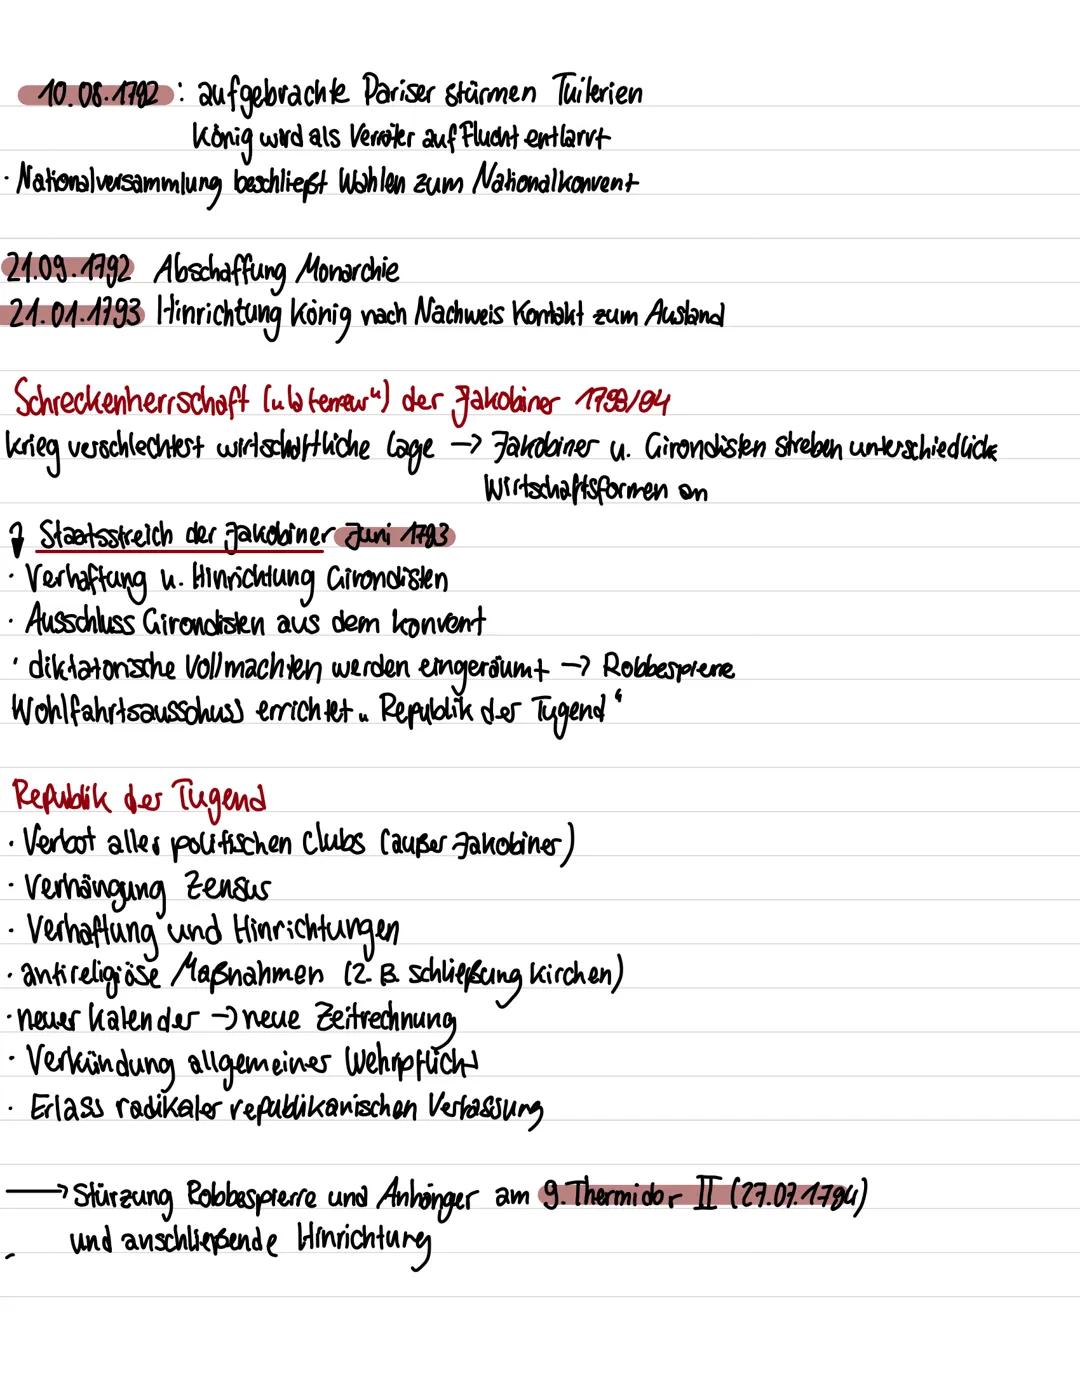 10.08.1792 : aufgebrachte Pariser stürmen Tuilerien
König wird als Verräter auf Flucht entlarvt
· Nationalversammlung beschließt Wahlen zum Nationalkonvent
21.09.1792 Abschaffung Monarchie
21.01.1793 Hinrichtung König nach Nachweis Kontakt zum Ausland
Schreckenherrschaft („la terreur“) der Jakobiner 1793/94
Krieg verschlechtert wirtschaftliche Lage → Jakobiner u. Girondisten streben unterschiedliche
Wirtschaftsformen an
Staatsstreich der Jakobiner Juni 1793
· Verhaftung u. Hinrichtung Girondisten
· Ausschluss Girondisten aus dem Konvent
· diktatorische Vollmachten werden eingeräumt → Robbespierre
Wohlfahrtsausschuss errichtet „Republik der Tugend“
Republik der Tugend
· Verbot aller politischen Clubs (außer Jakobiner)
· Verhängung Zensus
· Verhaftung und Hinrichtungen
· antireligiöse Maßnahmen (z. B. schließung Kirchen)
· neuer Kalender → neue Zeitrechnung
· Verkündung allgemeiner Wehrpflicht
· Erlass radikaler republikanischen Verfassung
→ Stürzung Robbespierre und Anhänger am 9. Thermidor II (27.07.1794)
und anschließende Hinrichtung